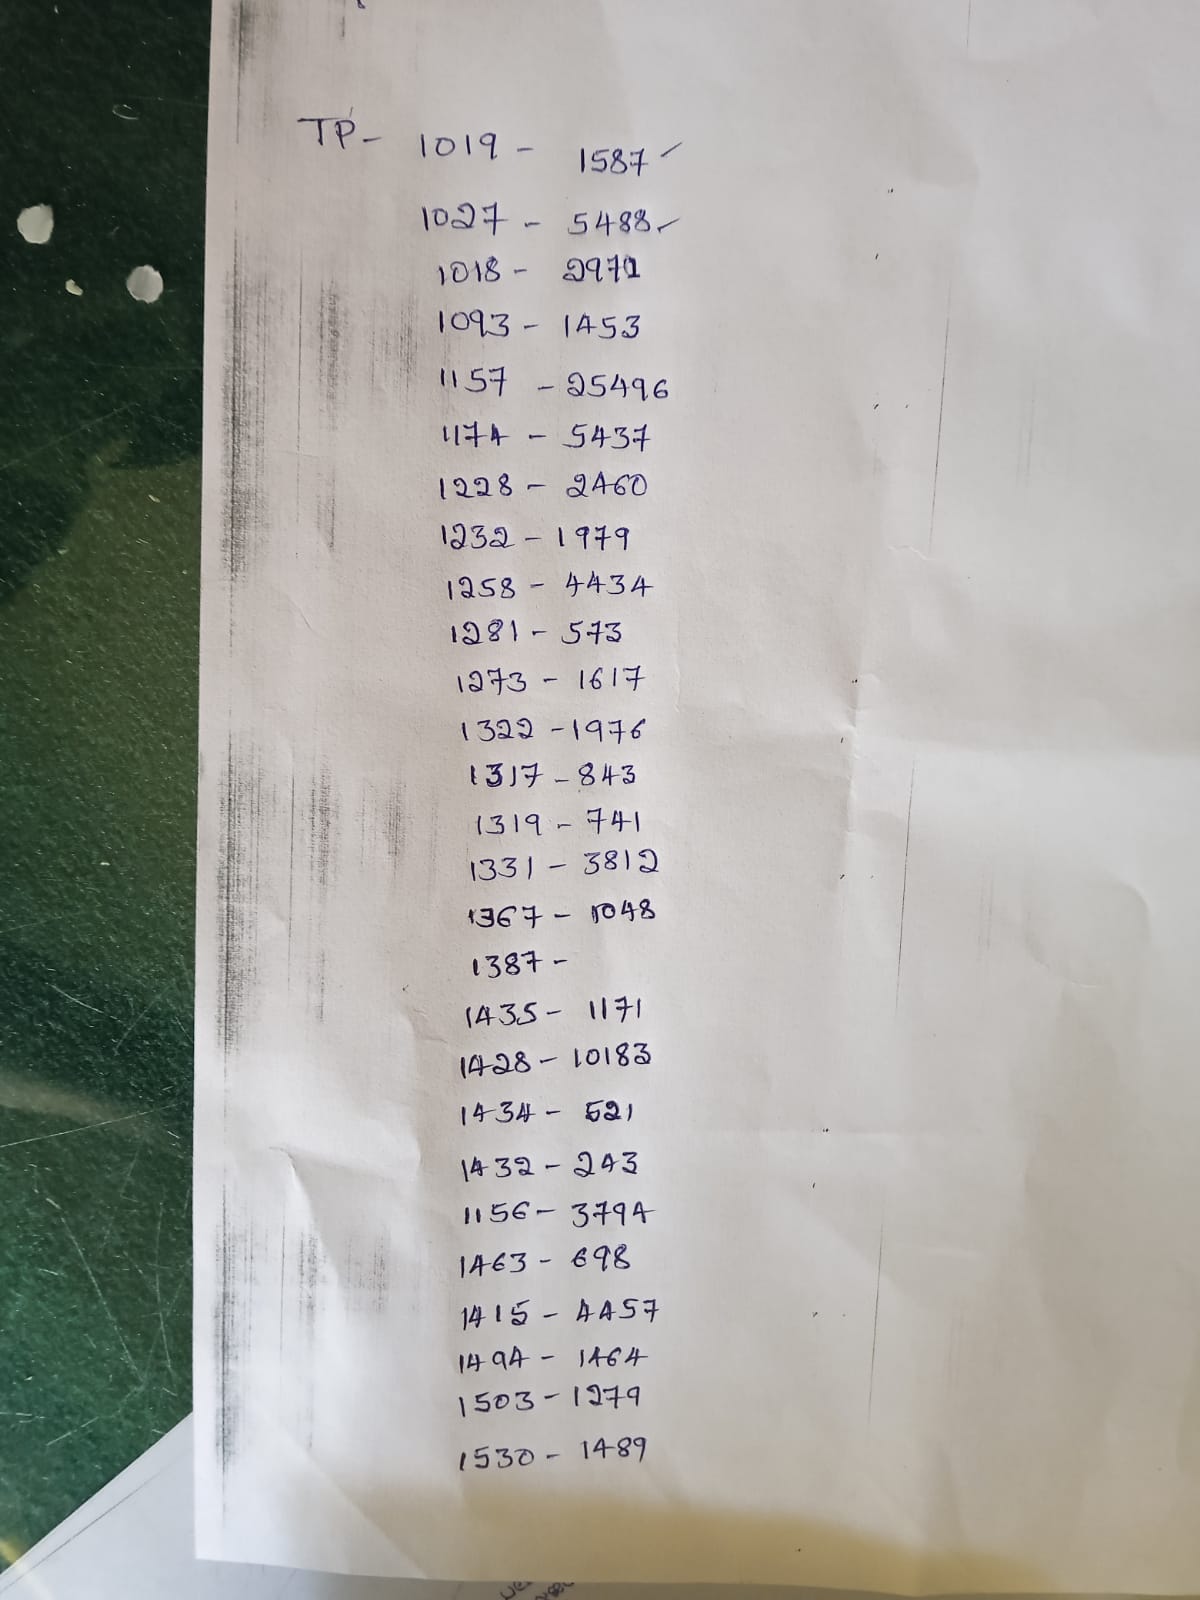 TP- 1019 - 1587 ✓
1027 - 5488 ✓
1018 - 2971
1093 - 1453
1157 - 25496
1174 - 5437
1228 - 2460
1232 - 1979
1258 - 4434
1281 - 573
1273 - 1617
1322 - 1976
1317 - 843
1319 - 741
1331 - 3812
1367 - 1048
1387 -
1435 - 1171
1428 - 10183
1434 - 521
1432 - 243
1156 - 3794
1463 - 698
1415 - 4457
1494 - 1464
1503 - 1279
1530 - 1489